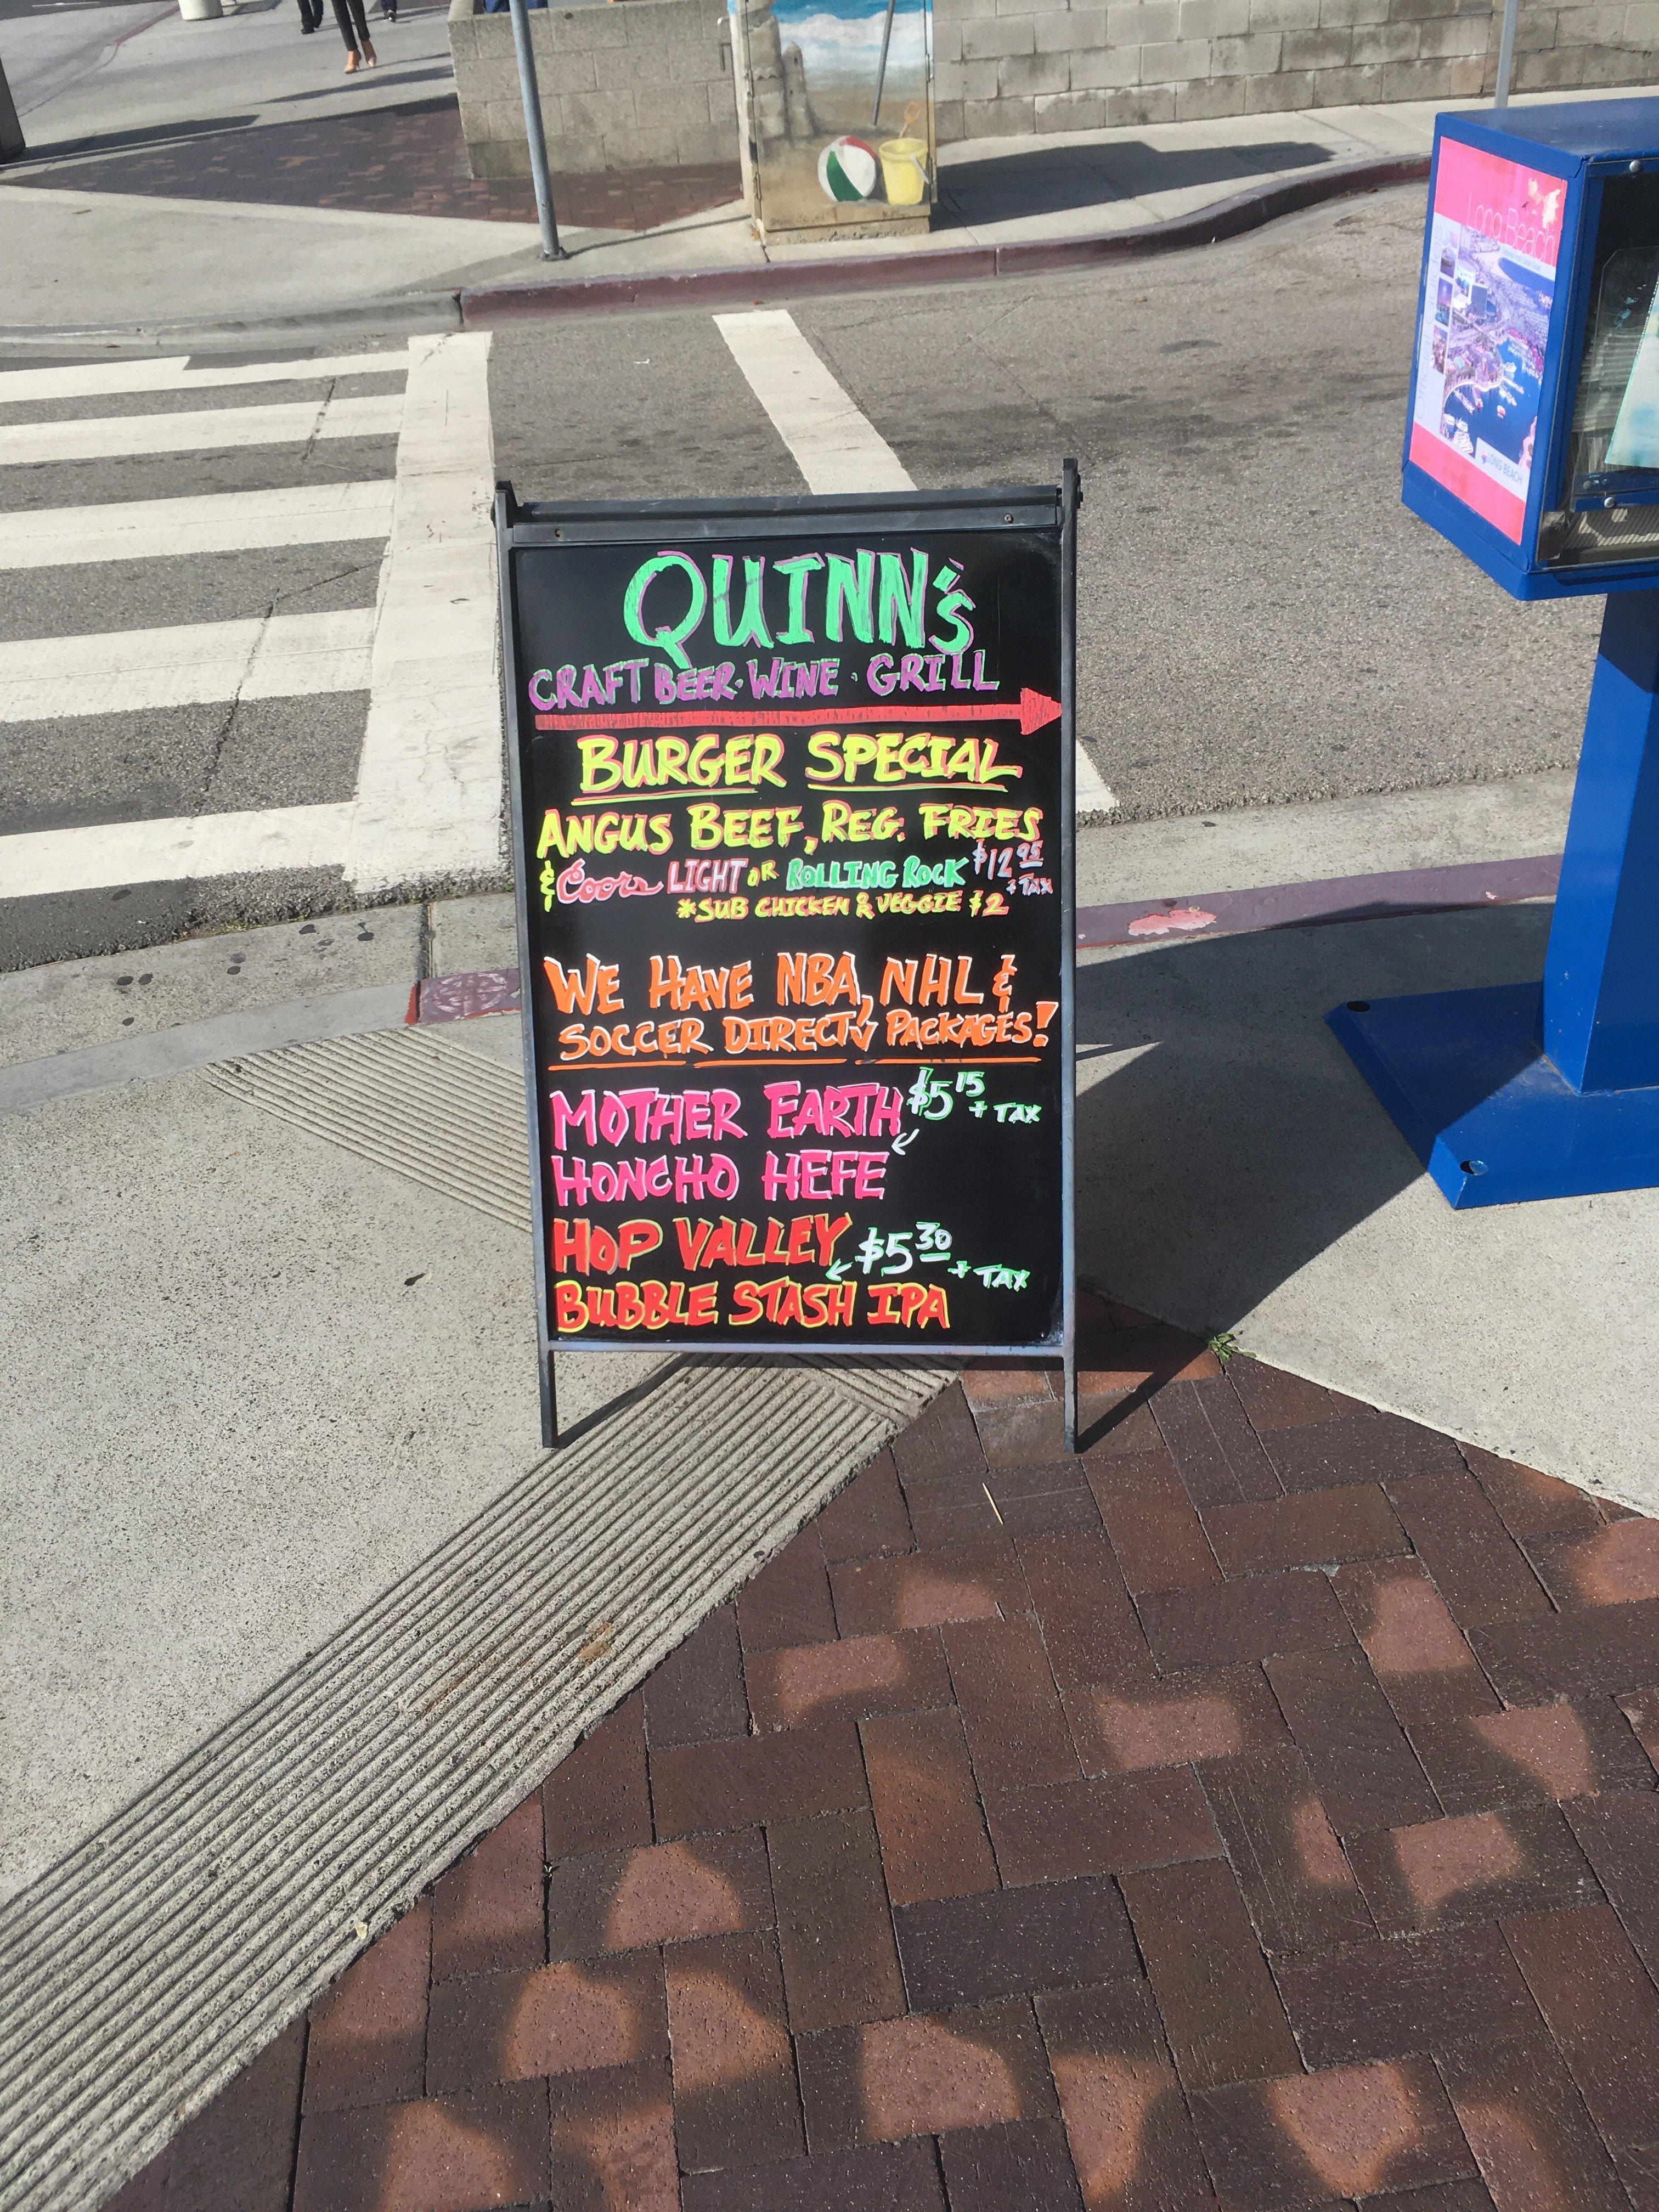 QUINN's
CRAFT BEER · WINE · GRILL
BURGER SPECIAL
ANGUS BEEF, REG. FRIES
& Coors LIGHT OR ROLLING ROCK $12 95 + TAX
*SUB CHICKEN & VEGGIE $2
WE HAVE NBA, NHL &
SOCCER DIRECTV PACKAGES!
MOTHER EARTH $5 15 + TAX
HONCHO HEFE
HOP VALLEY $5 30 + TAX
BUBBLE STASH IPA
Long Beach
LONG BEACH